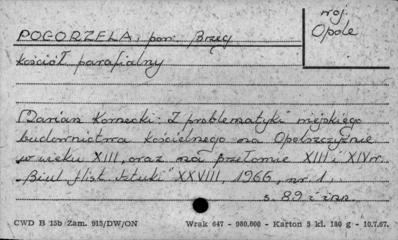 woj.
Opole
POGORZELA, pow. Brzeg
kościół parafialny
Marian Kornecki: Z problematyki miejskiego
budownictwa kościelnego na Opolszczyźnie
w wieku XIII, oraz na przełomie XIII i XIV w.
Biul. Hist. Sztuki XXVIII, 1966, nr. 1,
s. 89 i nn.
CWD B 15b Zam. 915/DW/ON Wrak 647 - 980.000 - Karton 3 kl. 180 g - 10.7.67.